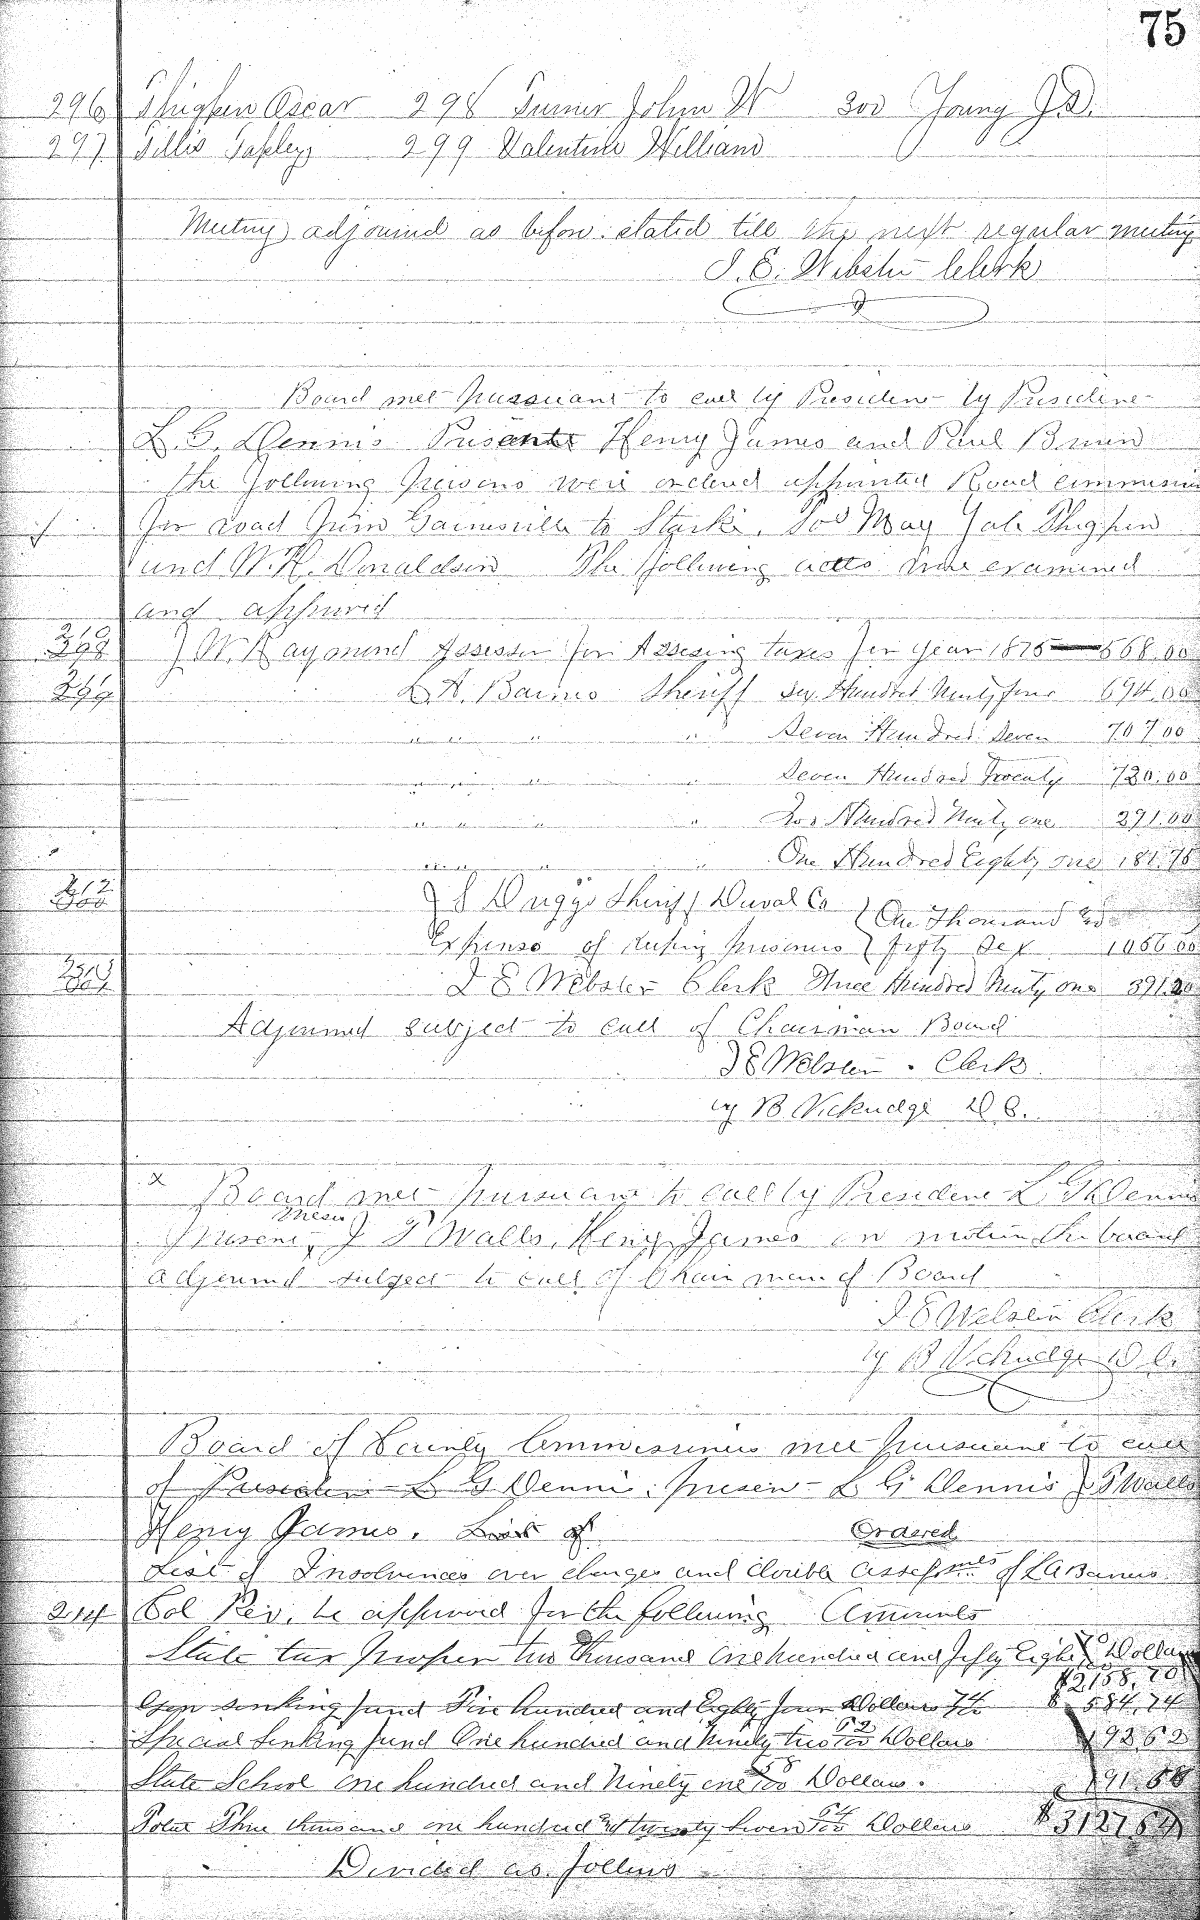 75
296 Thigpen Oscar 298 Turner John W 300 Young J.D.
297 Tillis Tapley 299 Valentine William
Meeting adjourned as before stated till the next regular meeting
J. E. Webster Clerk
Board met pursuant to call by President by President
L. G. Dennis Present Henry James and Paul Bruin
the following persons were ordered appointed Road commissin
for road from Gainesville to Starke. May Thigpen
and W. H. Donaldson The following accts were examined
and approved
210
298 J W. Raymond Assessor for Assesing taxes for year 1875 — 568.00
211
299 L A. Barnes Sheriff six Hundred Ninty four 694.00
" " " " Seven Hundred Seven 707 00
" " " " Seven Hundred Twenty 720.00
" " " " Two Hundred Ninty one 291.00
" " " " One Hundred Eighty one 181.75
212
300 Sheriff Duval Co One Thousand and
Expense of keeping prisoners fifty six 1056 00
213
301 J E Webster Clerk Three Hundred Ninty one 391.20
Adjourned subject to call of Chairman Board
J E Webster . Clerk
by B Vickudge D C.
x Board met pursuant to call by President L G Dennis
present Messrs J T Walls, Henry James on motion the board
adjournd subject to call of Chairman of Board
J E Webster Clerk
by B Vickudge D C.
Board of County Commissioners met pursuant to call
of President L G Dennis. present L G Dennis J T Walls
Henry James. List of Ordered
List of Insolvences over charges and double assessments of L A Barnes
214 Col Rev. be approved for the following Amounts
State tax proper two thousand one hundred and fifty Eight 70/100 Dollars
$2158.70
Gen sinking fund Five hundred and Eighty four Dollars 74/100 $ 584.74
Special Sinking fund One hundred and Ninety two 62/100 Dollars 192.62
State School one hundred and Ninety one 58/100 Dollars. 191.58
Total Three thousand one hundred and twenty seven 64/100 Dollars $3127.64
Divided as follows